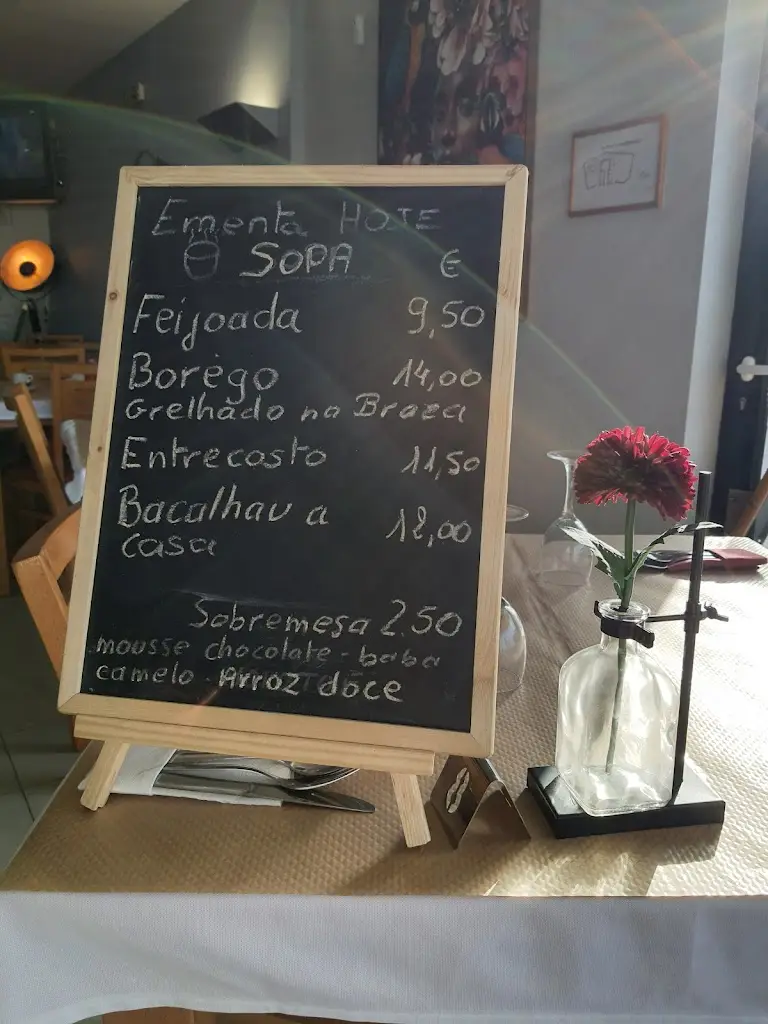 Ementa HOJE
SOPA €
Feijoada 9,50
Borègo 14,00
Grelhado na Braza
Entrecosto 11,50
Bacalhau a 12,00
casa
Sobremesa 2.50
mousse chocolate - baba
camelo - Arroz dôce